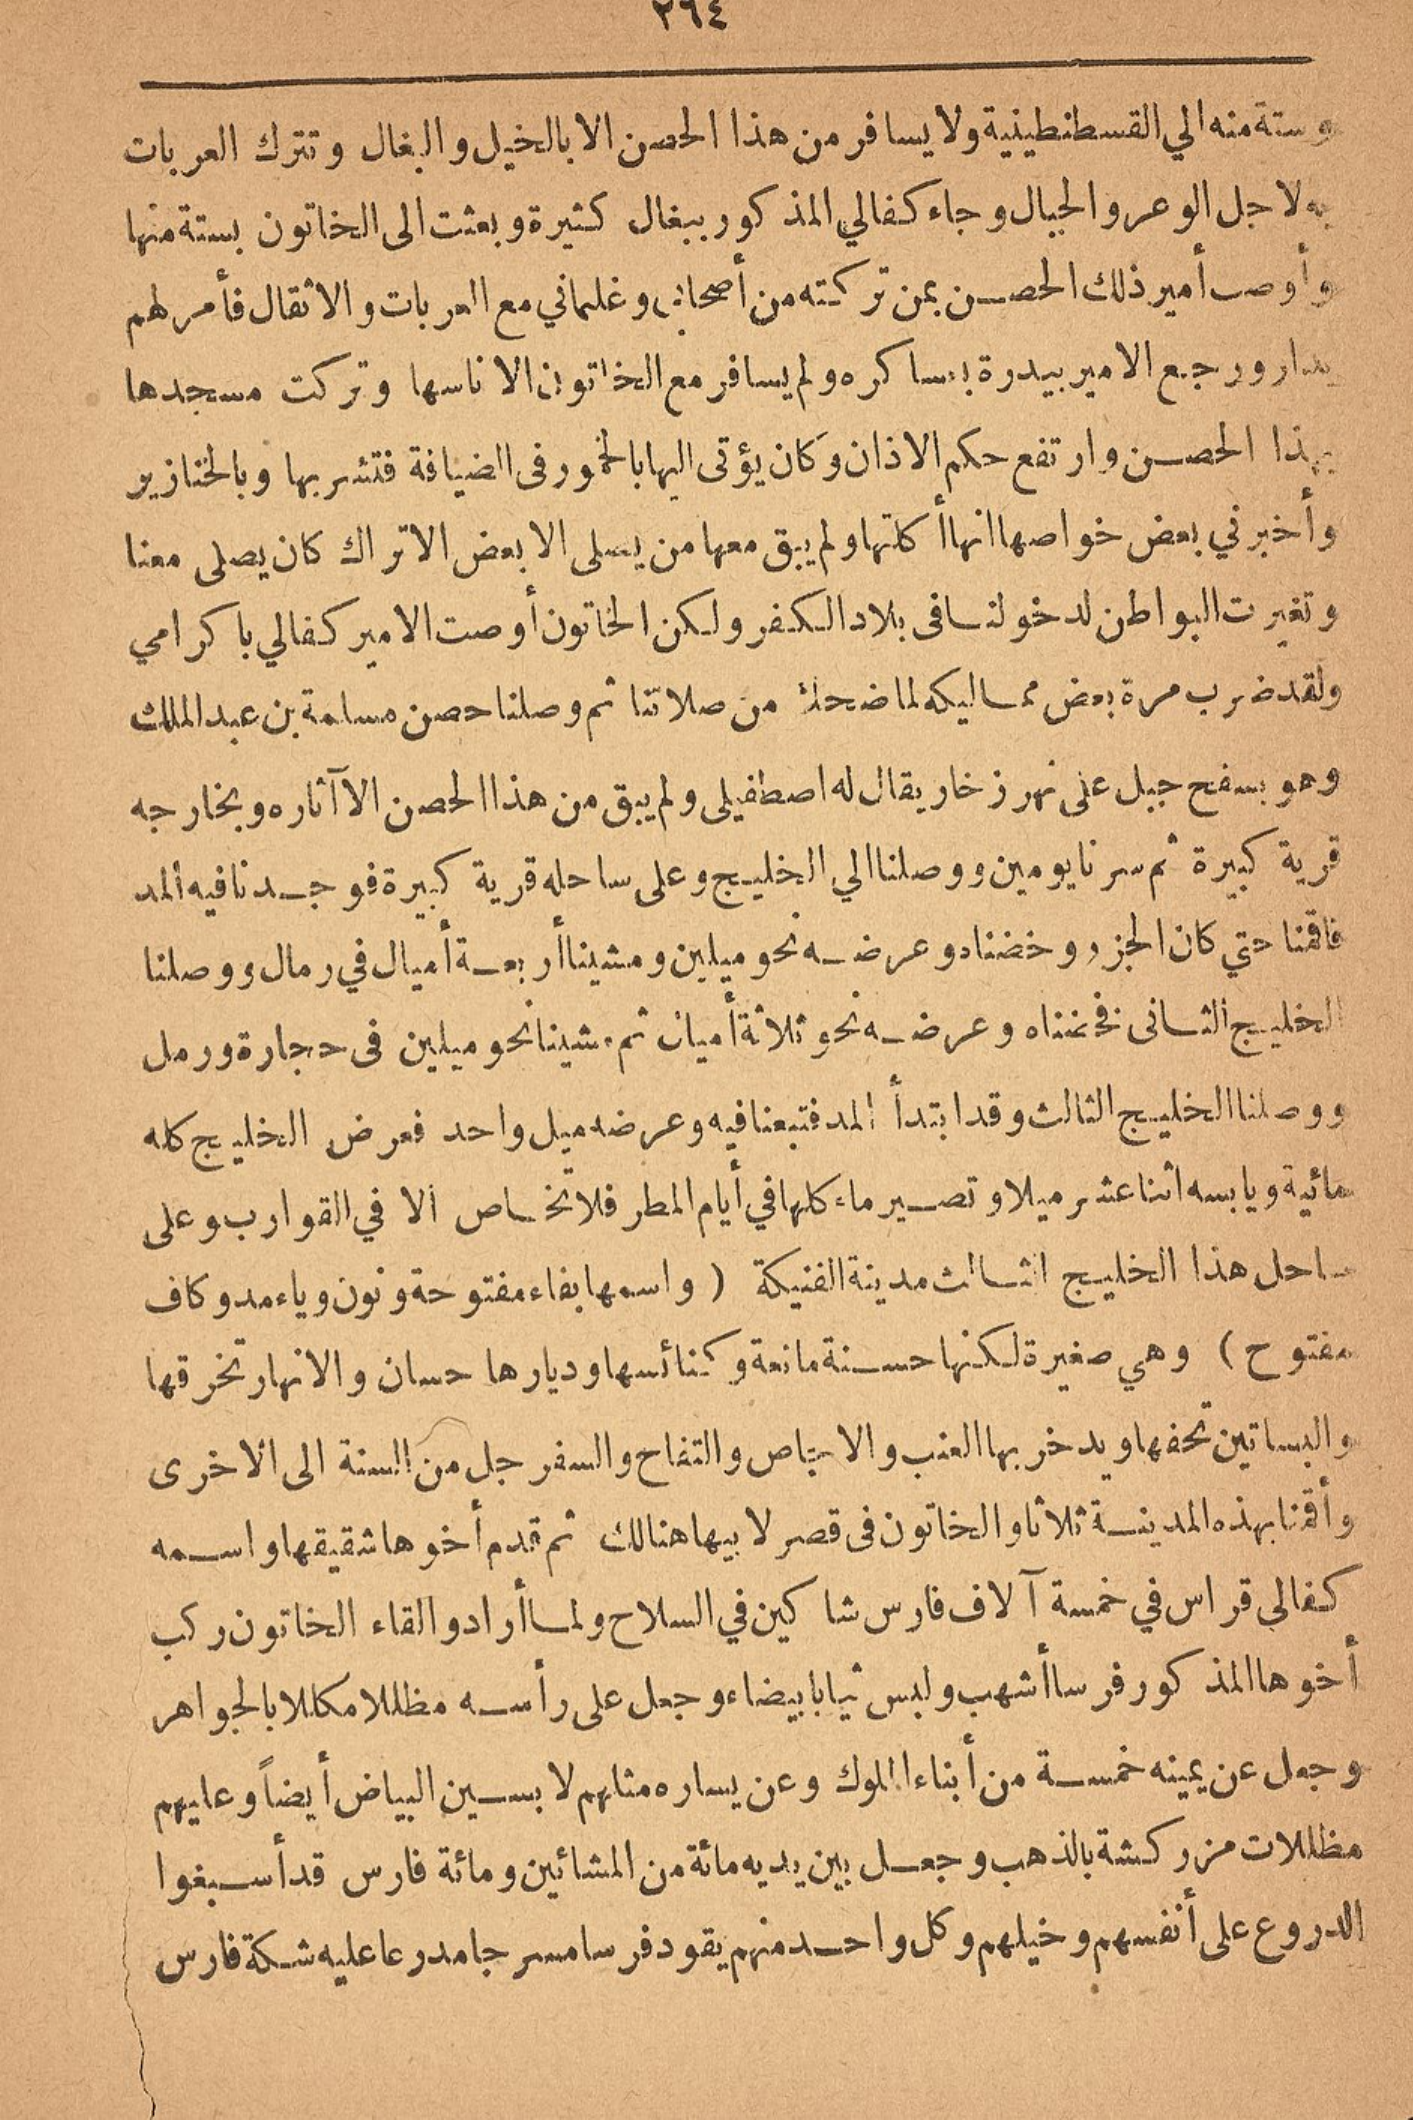 ٢٦٤
وستة منه الي القسطنطينية ولا يسافر من هذا الحصن الا بالخيل والبغال وتترك العربات
به لاجل الوعر والجبال وجاء كفالي المذكور ببغال كثيرة وبعثت الى الخاتون بستة منها
وأوصت أمير ذلك الحصن بمن تركته من أصحابي وغلماني مع العربات والاثقال فأمر لهم
بدار ورجع الامير بيدرة بعساكره ولم يسافر مع الخاتون الا ناسها وتركت مسجدها
بهذا الحصن وارتفع حكم الاذان وكان يؤتى اليها بالخمور فى الضيافة فتشربها وبالخنازير
وأخبرني بعض خواصها انها أكلتها ولم يبق معها من يصلى الا بعض الاتراك كان يصلى معنا
وتغيرت البواطن لدخولنا فى بلاد الكفر ولكن الخاتون أوصت الامير كفالي باكرامي
ولقد ضرب مرة بعض مماليكه لما ضحك من صلاتنا ثم وصلنا حصن مسلمة بن عبد الملك
وهو بسفح جبل على نهر زخار يقال له اصطفيلى ولم يبق من هذا الحصن الا آثاره وبخارجه
قرية كبيرة ثم سرنا يومين ووصلنا الي الخليج وعلى ساحله قرية كبيرة فوجدنا فيه المد
فاقمنا حتي كان الجزر وخضناه وعرضه نحو ميلين ومشينا أربعة أميال في رمال ووصلنا
الخليج الثانى فخضناه وعرضه نحو ثلاثة أميال ثم مشينا نحو ميلين فى حجارة ورمل
ووصلنا الخليج الثالث وقد ابتدأ المد فتبعنا فيه وعرضه ميل واحد فعرض الخليج كله
مائية ويابسه اثنا عشر ميلا وتصير ماء كلها في أيام المطر فلا تخاص الا في القوارب وعلى
ساحل هذا الخليج الثالث مدينة الفنيكة ( واسمها بفاء مفتوحة ونون وياء مد وكاف
مفتوح ) وهي صغيرة لكنها حسنة مانعة وكنائسها وديارها حسان والانهار تخرقها
والبساتين تحفها ويدخر بها العنب والاجاص والتفاح والسفرجل من السنة الى الاخرى
وأقمنا بهذه المدينة ثلاثا والخاتون فى قصر لابيها هنالك ثم قدم أخوها شقيقها واسمه
كفالى قراس في خمسة آلاف فارس شاكين في السلاح ولما أرادوا لقاء الخاتون ركب
أخوها المذكور فرسا أشهب ولبس ثيابا بيضاء وجعل على رأسه مظللا مكللا بالجواهر
وجعل عن يمينه خمسة من أبناء الملوك وعن يساره مثلهم لابسين البياض أيضاً وعليهم
مظللات مزركشة بالذهب وجعل بين يديه مائة من المشائين ومائة فارس قد أسبغوا
الدروع على أنفسهم وخيلهم وكل واحد منهم يقود فرسا مسرجا مدرعا عليه شكة فارس